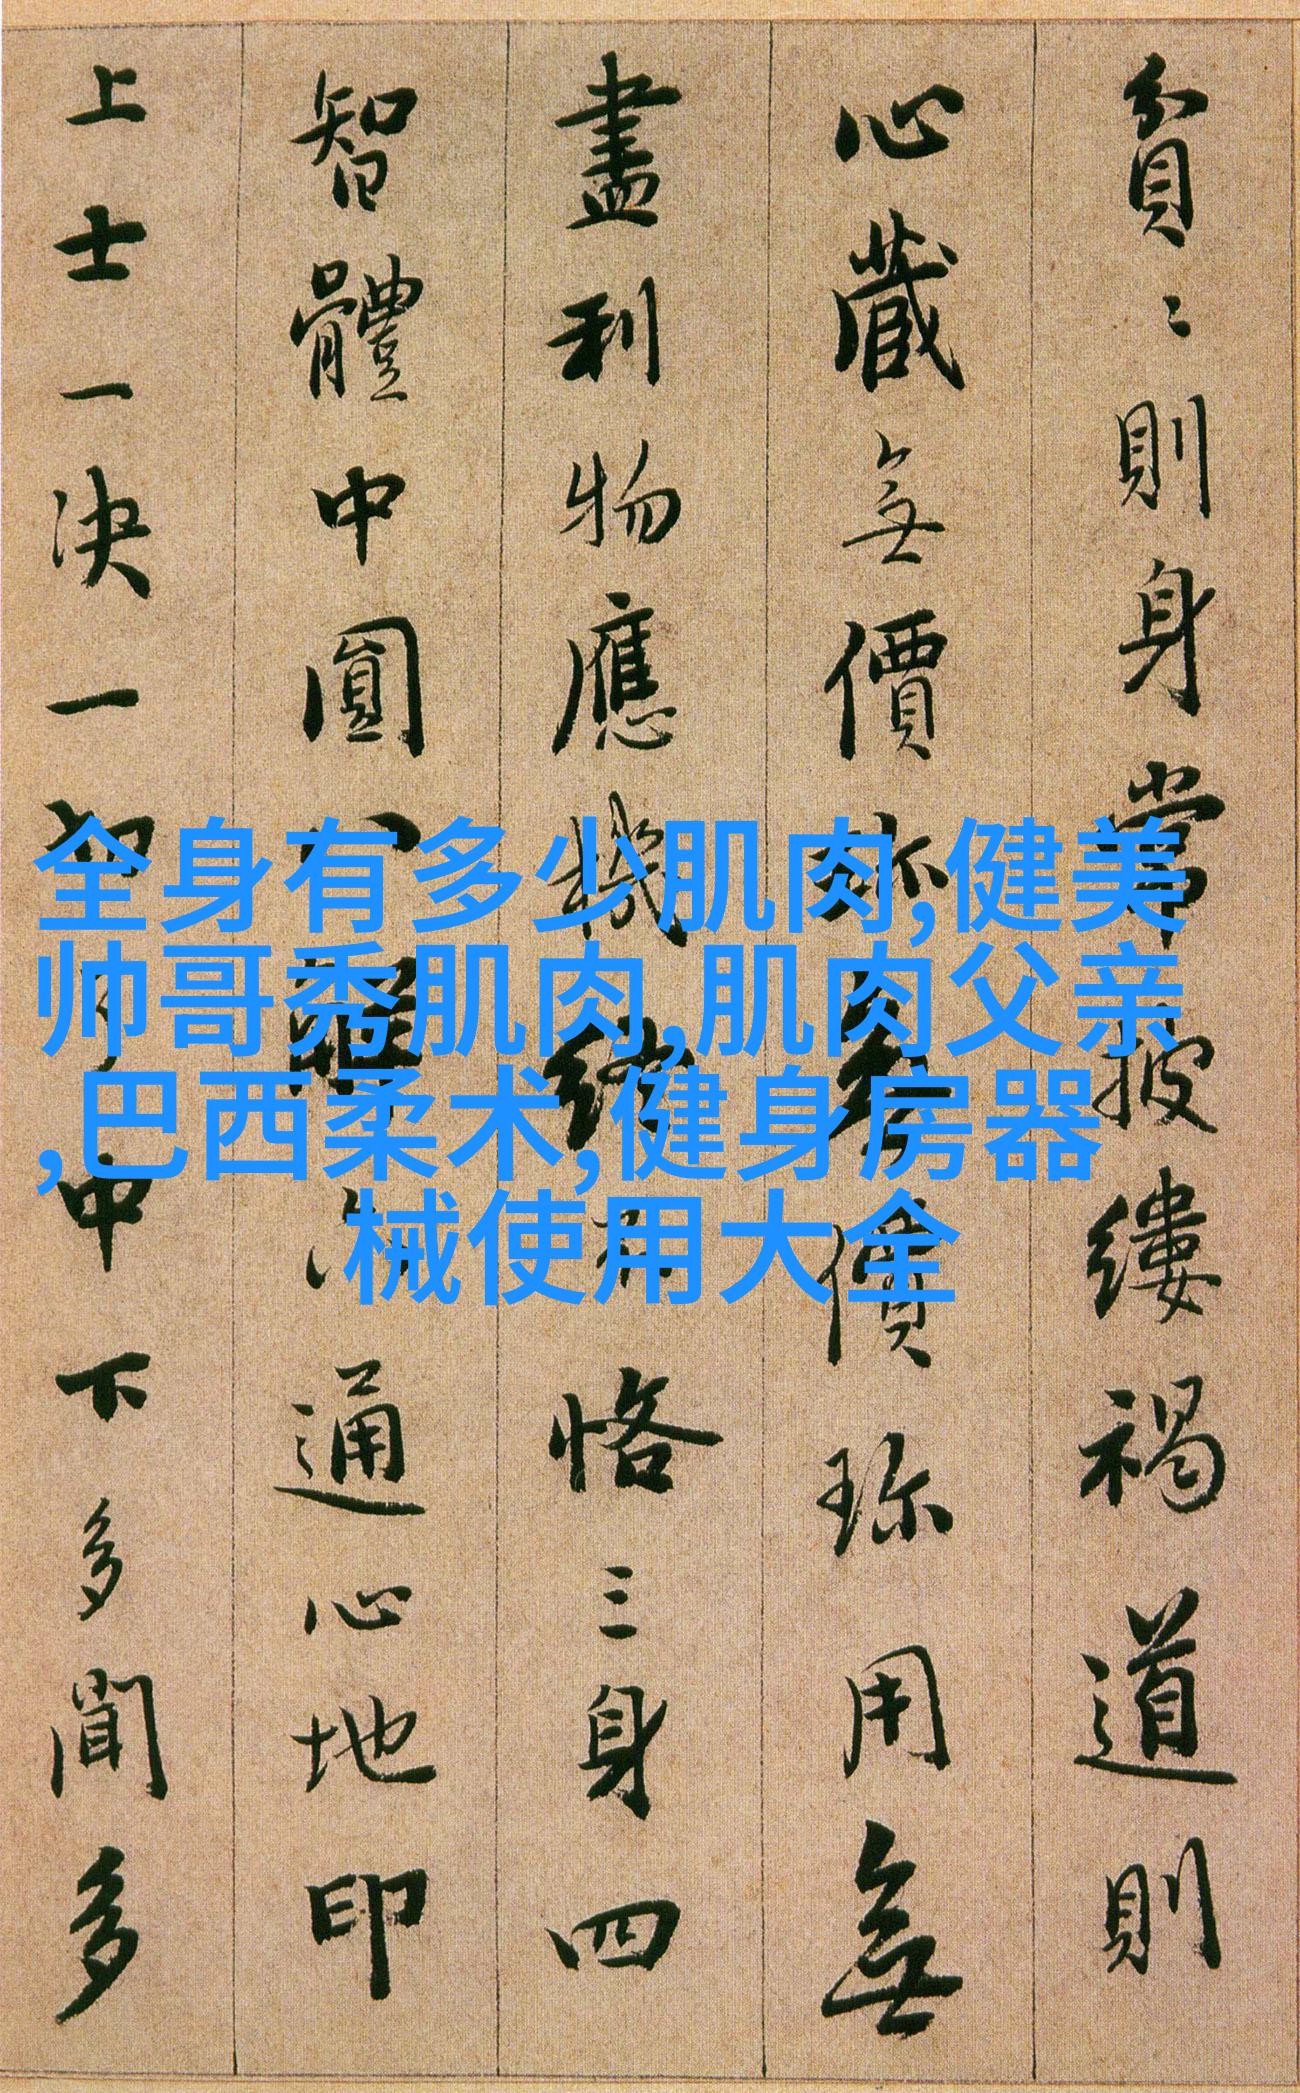 貧〻則身常披縷褐道則
心藏無價珎無價珎用無
盡利物應機終不恪三身四
智體中圓八解六通心地印
上士一決一切了中下多聞多
全身有多少肌肉,健美
帅哥秀肌肉,肌肉父亲
,巴西柔术,健身房器
械使用大全